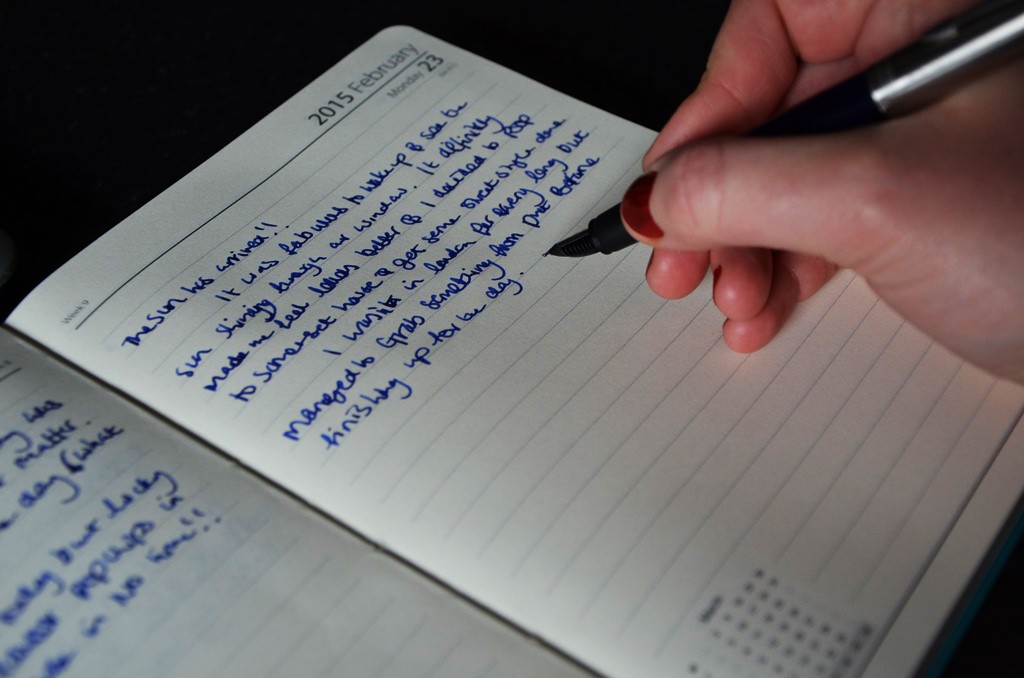 2015 February
Monday 23
Week 9
The sun has arrived!!
It was fab to wake up & see the
sun shining through our window. It definitely
made me feel better & I decided to pop
to somerset house & get some street style done
I wasn't in london for very long but
managed to Grab something from Pret Before
finishing up for the day.
matter.
day
what
lucky
popups in
in no time!!
March